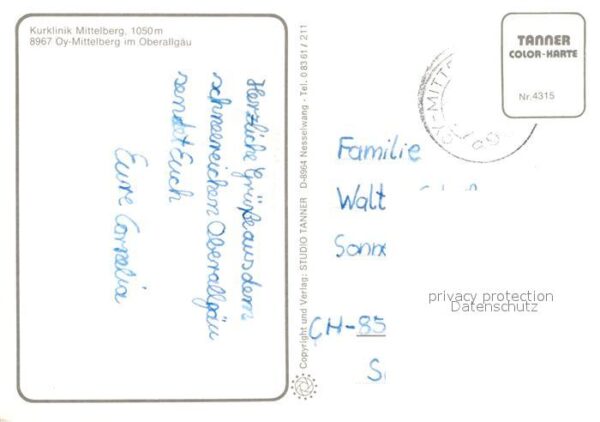 Kurklinik Mittelberg, 1050 m
8967 Oy-Mittelberg im Oberallgäu
Herzliche Grüße aus dem
schneereichen Oberallgäu
sendet Euch
Eure Cornelia
Copyright und Verlag: STUDIO TANNER D-8964 Nesselwang - Tel. 08361/211
TANNER
COLOR-KARTE
Nr. 4315
OY-MITTE
Familie
Walt
Sonn
CH-85
S
privacy protection
Datenschutz